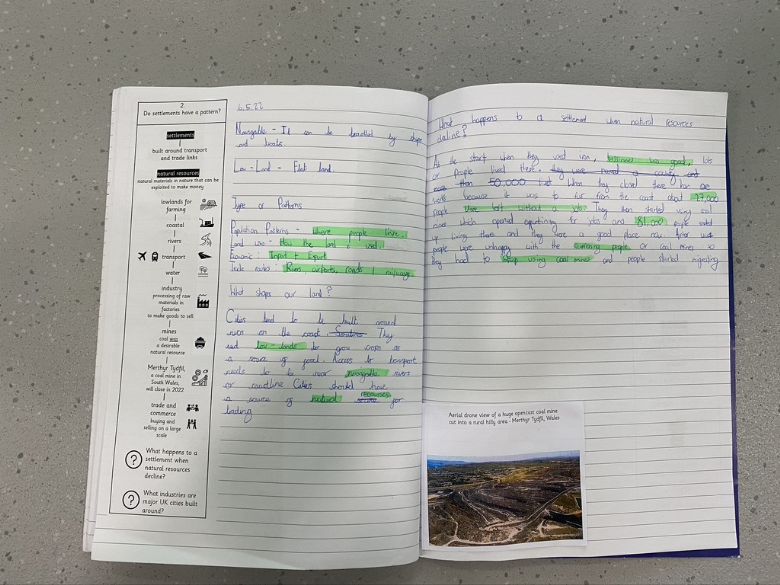 2
Do settlements have a pattern?
settlements
built around transport
and trade links
natural resources
natural materials in nature that can be
exploited to make money
lowlands for
farming
coastal
rivers
transport
water
industry
processing of raw
materials in
factories
to make goods to sell
mines
coal was
a desirable
natural resource
Merthyr Tydfil,
a coal mine in
South Wales,
will close in 2022
trade and
commerce
buying and
selling on a large
scale
? What happens to a
settlement when
natural resources
decline?
? What industries are
major UK cities built
around?
6.5.22
Navigable - It can be travelled by ships
and boats.
Low-Land - Flat land.
Type of Patterns
Population Patterns - Where people live.
Land use - How the land is used.
Economic: Import + Export
Trade routes River, airports, roads, railways
What shapes our land?
Cities tend to be built around
rivers or the coast. They
need low-lands to grow crops as
a source of food. Access to transport
needs to be near navigable rivers
or coastline Cities should have
a source of natural resources for
trading
What happens to a settlement when natural resources
decline?
At the start when they used iron, business was good, lots
of people lived there, they were a county and
more than 50,000 that When they closed there
work because it was to far from the coast about 27,000
people were left without a job. They then started using coal
mines which opened opertuning for jobs and 81,000 people ended
up living there and they were a good place now
people were unhappy with the coal mine so
they had to stop using coal mines and people started migrating
Aerial drone view of a huge opencast coal mine
cut into a rural hilly area - Merthyr Tydfil, Wales